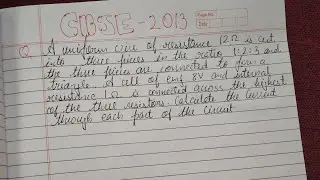 CBSE - 2013
Q A uniform wire of resistance 12Ω is cut
into three pieces in the ratio 1:2:3 and
the three pieces are connected to form a
triangle. A cell of emf 8V and internal
resistance 1Ω is connected across the highest
of the three resistors. Calculate the current
through each part of the circuit